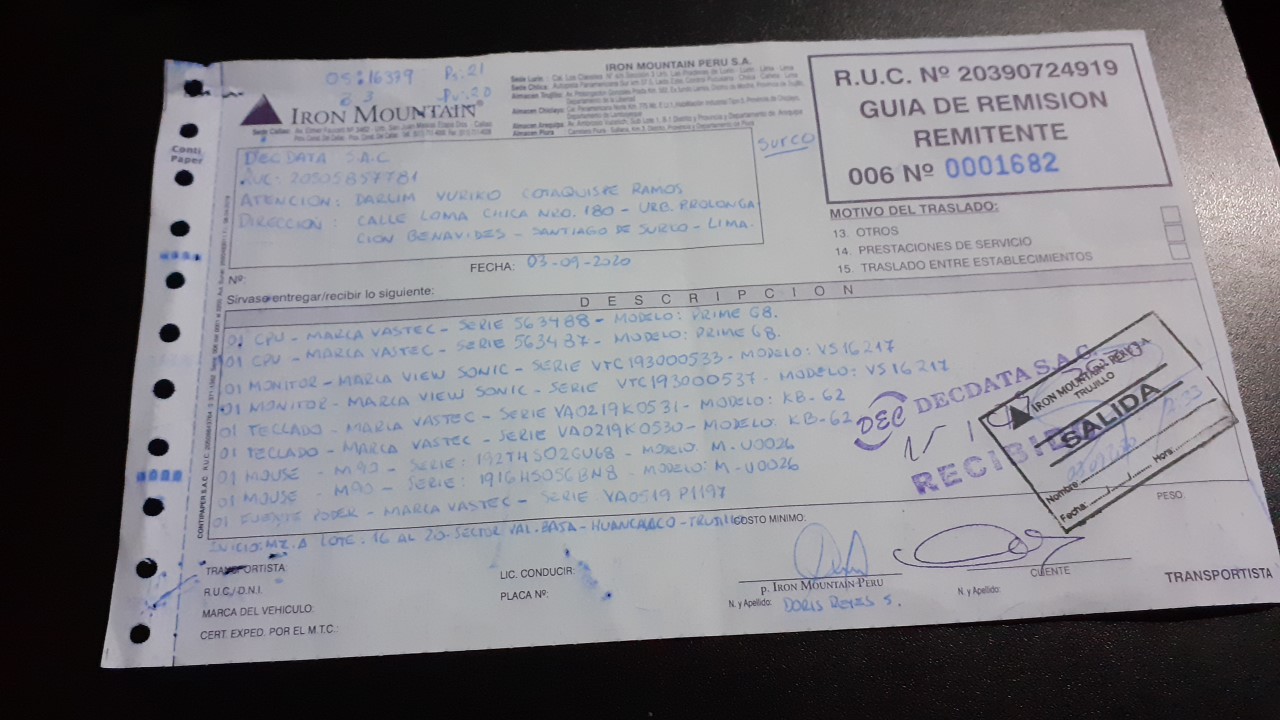 OS: 16379 Ps. 21
B3 Pv: 20
IRON MOUNTAIN®
IRON MOUNTAIN PERU S.A.
Conti
Paper
SURCO
R.U.C. Nº 20390724919
GUIA DE REMISION
REMITENTE
006 Nº 0001682
DECDATA S.A.C
RUC: 20505857781
ATENCION: DARLIM YURIKO COTAQUISPE RAMOS
DIRECCION: CALLE LOMA CHICA NRO. 180 - URB. PROLONGA
CION BENAVIDES - SANTIAGO DE SURCO - LIMA.
FECHA: 03-09-2020
Nº:
MOTIVO DEL TRASLADO:
13. OTROS
14. PRESTACIONES DE SERVICIO
15. TRASLADO ENTRE ESTABLECIMIENTOS
Sírvase entregar/recibir lo siguiente:
DESCRIPCION
01 CPU - MARCA VASTEC - SERIE 563488 - MODELO: PRIME G8.
01 CPU - MARCA VASTEC - SERIE 563487 - MODELO: PRIME G8.
01 MONITOR - MARCA VIEW SONIC - SERIE VTC193000533 - MODELO: VS16217
01 MONITOR - MARCA VIEW SONIC - SERIE VTC193000537 - MODELO: VS16217
01 TECLADO - MARCA VASTEC - SERIE VA0219K0531 - MODELO: KB-62
01 TECLADO - MARCA VASTEC - SERIE VA0219K0530 - MODELO: KB-62
01 MOUSE - M90 - SERIE: 192THS02GU68 - MODELO: M-U0026
01 MOUSE - M90 - SERIE: 1916HS05CBN8 - MODELO: M-U0026
01 FUENTE PODER - MARCA VASTEC - SERIE VA0519P1197
INICIO: MZ. A LOTE. 16 AL 20- SECTOR VAL. BAJA - HUANCHACO - TRUJILLO
DEC DECDATA S.A.C.
RECIBIDO
IRON MOUNTAIN-PERU S.A
TRUJILLO
SALIDA
Nombre:
Hora:
Fecha:
COSTO MINIMO:
PESO
TRANSPORTISTA:
R.U.C./D.N.I.
MARCA DEL VEHICULO:
CERT. EXPED. POR EL M.T.C.:
LIC. CONDUCIR:
PLACA Nº:
p. IRON MOUNTAIN-PERU
N. y Apellido: DORIS REYES S.
CLIENTE
N. y Apellido:
TRANSPORTISTA